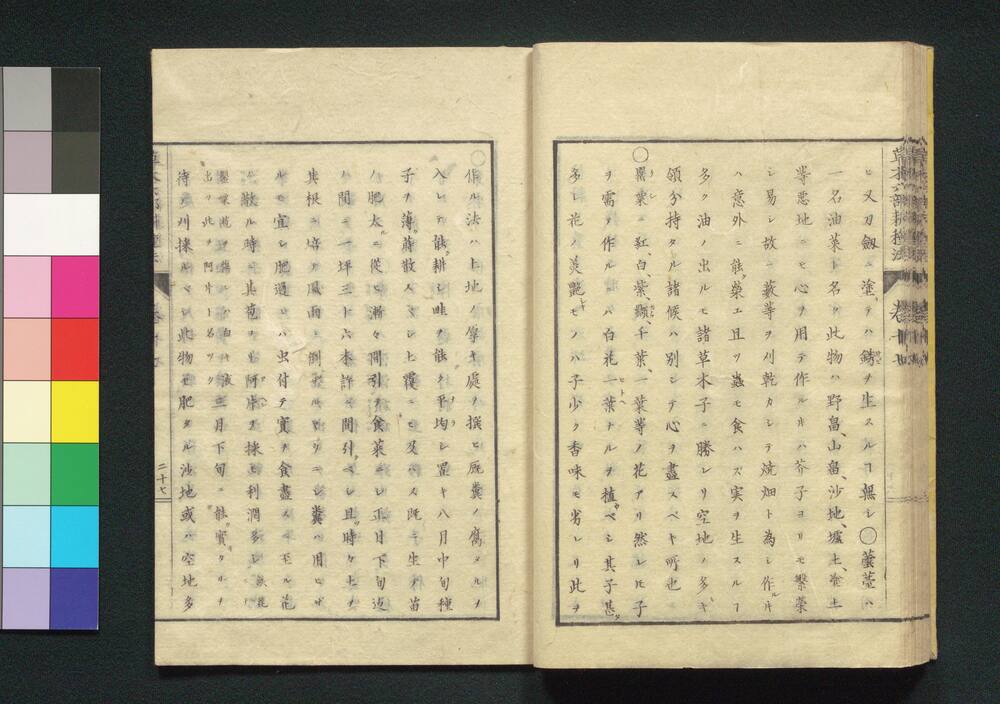 ヒ又刀劔ニ塗テハ錆ヲ生スルヿ無シ〇蕓薹ハ
一名油菜ト名ク此物ハ野畠、山畠、沙地、壚土、埴土
等悪地ニモ心ヲ用テ作ルキハ芥子ヨリモ繁榮
シ易シ故ニ薮等ヲ刈乾カシテ焼畑ト為シ作ルキ
ハ意外ニ能榮エ且ツ蟲モ食ハズ実ヲ生スルヿ
多ク油ノ出ルモ諸草木子ニ勝レリ空地ノ多キ
領分持タル諸候ハ別シテ心ヲ盡スベキ所也
〇罌粟ニ紅、白、紫、纈、千葉、一葉等ノ花アリ然レ𪜈子
ヲ需テ作ルニハ白花一葉ナルヲ植ベシ其子甚タ
多シ花ノ美艶シキモノハ子少ク香味モ劣レリ此ヲ
作ル法ハ上地ノ厚キ處ヲ撰ヒ厩糞ノ腐タルヲ
入レテ能耕シ畦ヲ能ク平均シ置キ八月中旬種
子ヲ薄蒔散スベシ土覆ニモ及バス既ニ生テ苗
ノ肥太ルニ從ヒ漸々間引テ食菜ニシ正月下旬迄
ノ間ニ一坪三十六本許ニ間引ベシ且時々土ヲ
其根ニ培ヒ風雨ニ倒レザルヤウニシ糞ハ用ヒザ
ルモ宜シ肥過レハ虫付テ實ヲ食盡スニ至ル花
ノ散ル時ニ其苞ヨリ阿片ヲ採ヒ利潤多シ
三月下旬ニ能實タリヲ
出ツ此ヲ阿片ト名ツク
待テ刈採ルベシ此物モ肥タル沙地或ハ空地多
二十七
草木六部耕種法